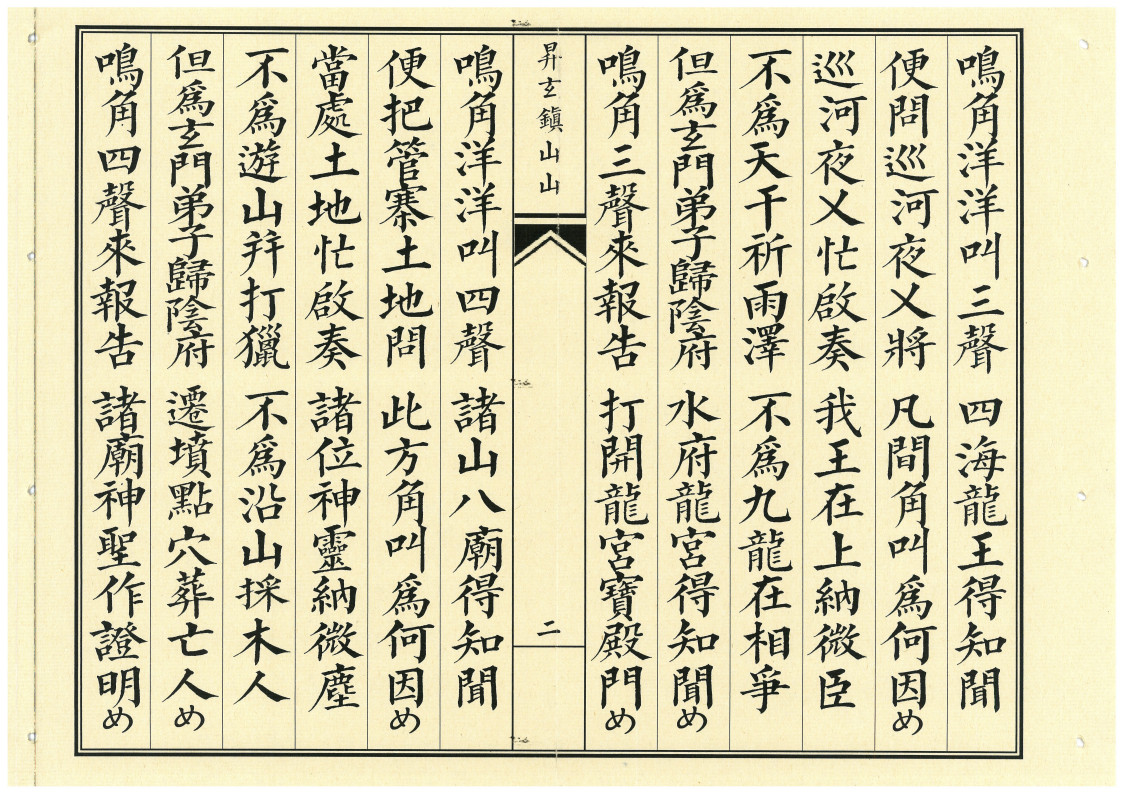 鳴角洋洋叫三聲 四海龍王得知聞
便問巡河夜乂將 凡間角叫爲何因め
巡河夜乂忙啟奏 我王在上納微臣
不爲天干祈雨澤 不爲九龍在相爭
但爲玄門弟子歸陰府 水府龍宮得知聞め
鳴角三聲來報告 打開龍宮寶殿門め
昇玄鎮山山
二
鳴角洋洋叫四聲 諸山八廟得知聞
便把管寨土地問 此方角叫爲何因め
當處土地忙啟奏 諸位神靈納微塵
不爲遊山并打獵 不爲沿山採木人
但爲玄門弟子歸陰府 遷墳點穴葬亡人め
鳴角四聲來報告 諸廟神聖作證明め